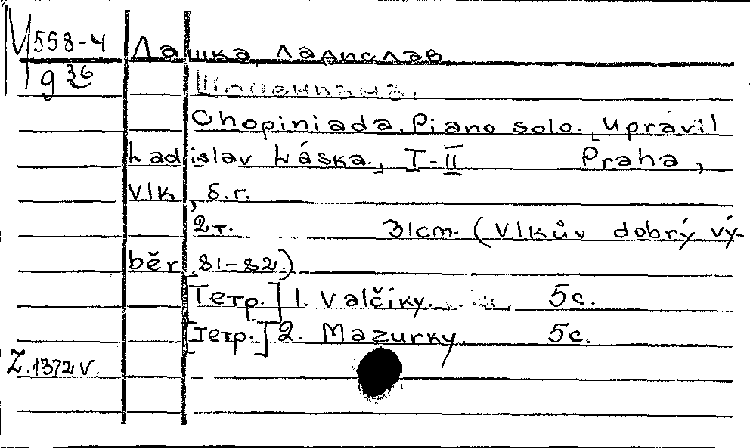 М 558-4 Лашка, Ладислав
9 36 Шопениана.
Chopiniada. Piano solo. Upravil
Ladislav Láska, I-II Praha,
Vlk, s.r.
2т. 31cm. (Vlkův dobrý vý-
běr 81-82)
[Тетр.] 1. Valčíky. 5с.
[Тетр.] 2. Mazurky 5с.
Z.1372V